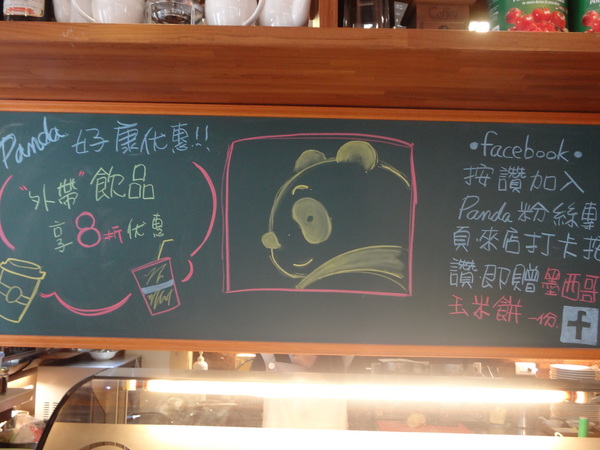 Panda 好康优惠!!
"外帶"飲品
享8折优惠
•facebook•
按讚加入
Panda粉絲專
頁.來店打卡按
讚即贈墨西哥
玉米餅一份.
f